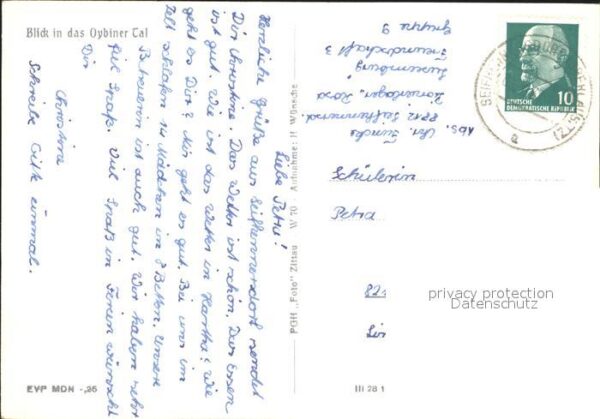 Blick in das Oybiner Tal
Liebe Petra!
Herzliche Grüße aus Seifhennersdorf sendet
Dir Christine. Das Wetter ist schön. Das Essen
ist gut. Wie ist das Wetter in Hartha? Wie
geht es Dir? Mir geht es gut. Bei uns im
Zelt schlafen 14 Mädchen in 8 Betten. Unsere
Betreuerin ist auch gut. Wir haben sehr
viel Spaß. Viel Spaß in Ferien wünscht
Dir
Christine
Schreibe bitte einmal.
EVP MDN -,25
PGH „Foto" Zittau W 70 Aufnahme: H. Wünsche
Abs. Chr.
8812 Seifhennersd.
Pionierlager, Rosa
Luxemburg
Freundschaft 3
Gruppe 9
DEUTSCHE
DEMOKRATISCHE REPUBLIK
10
Schülerin
Petra
82
privacy protection
Datenschutz
III 28 1